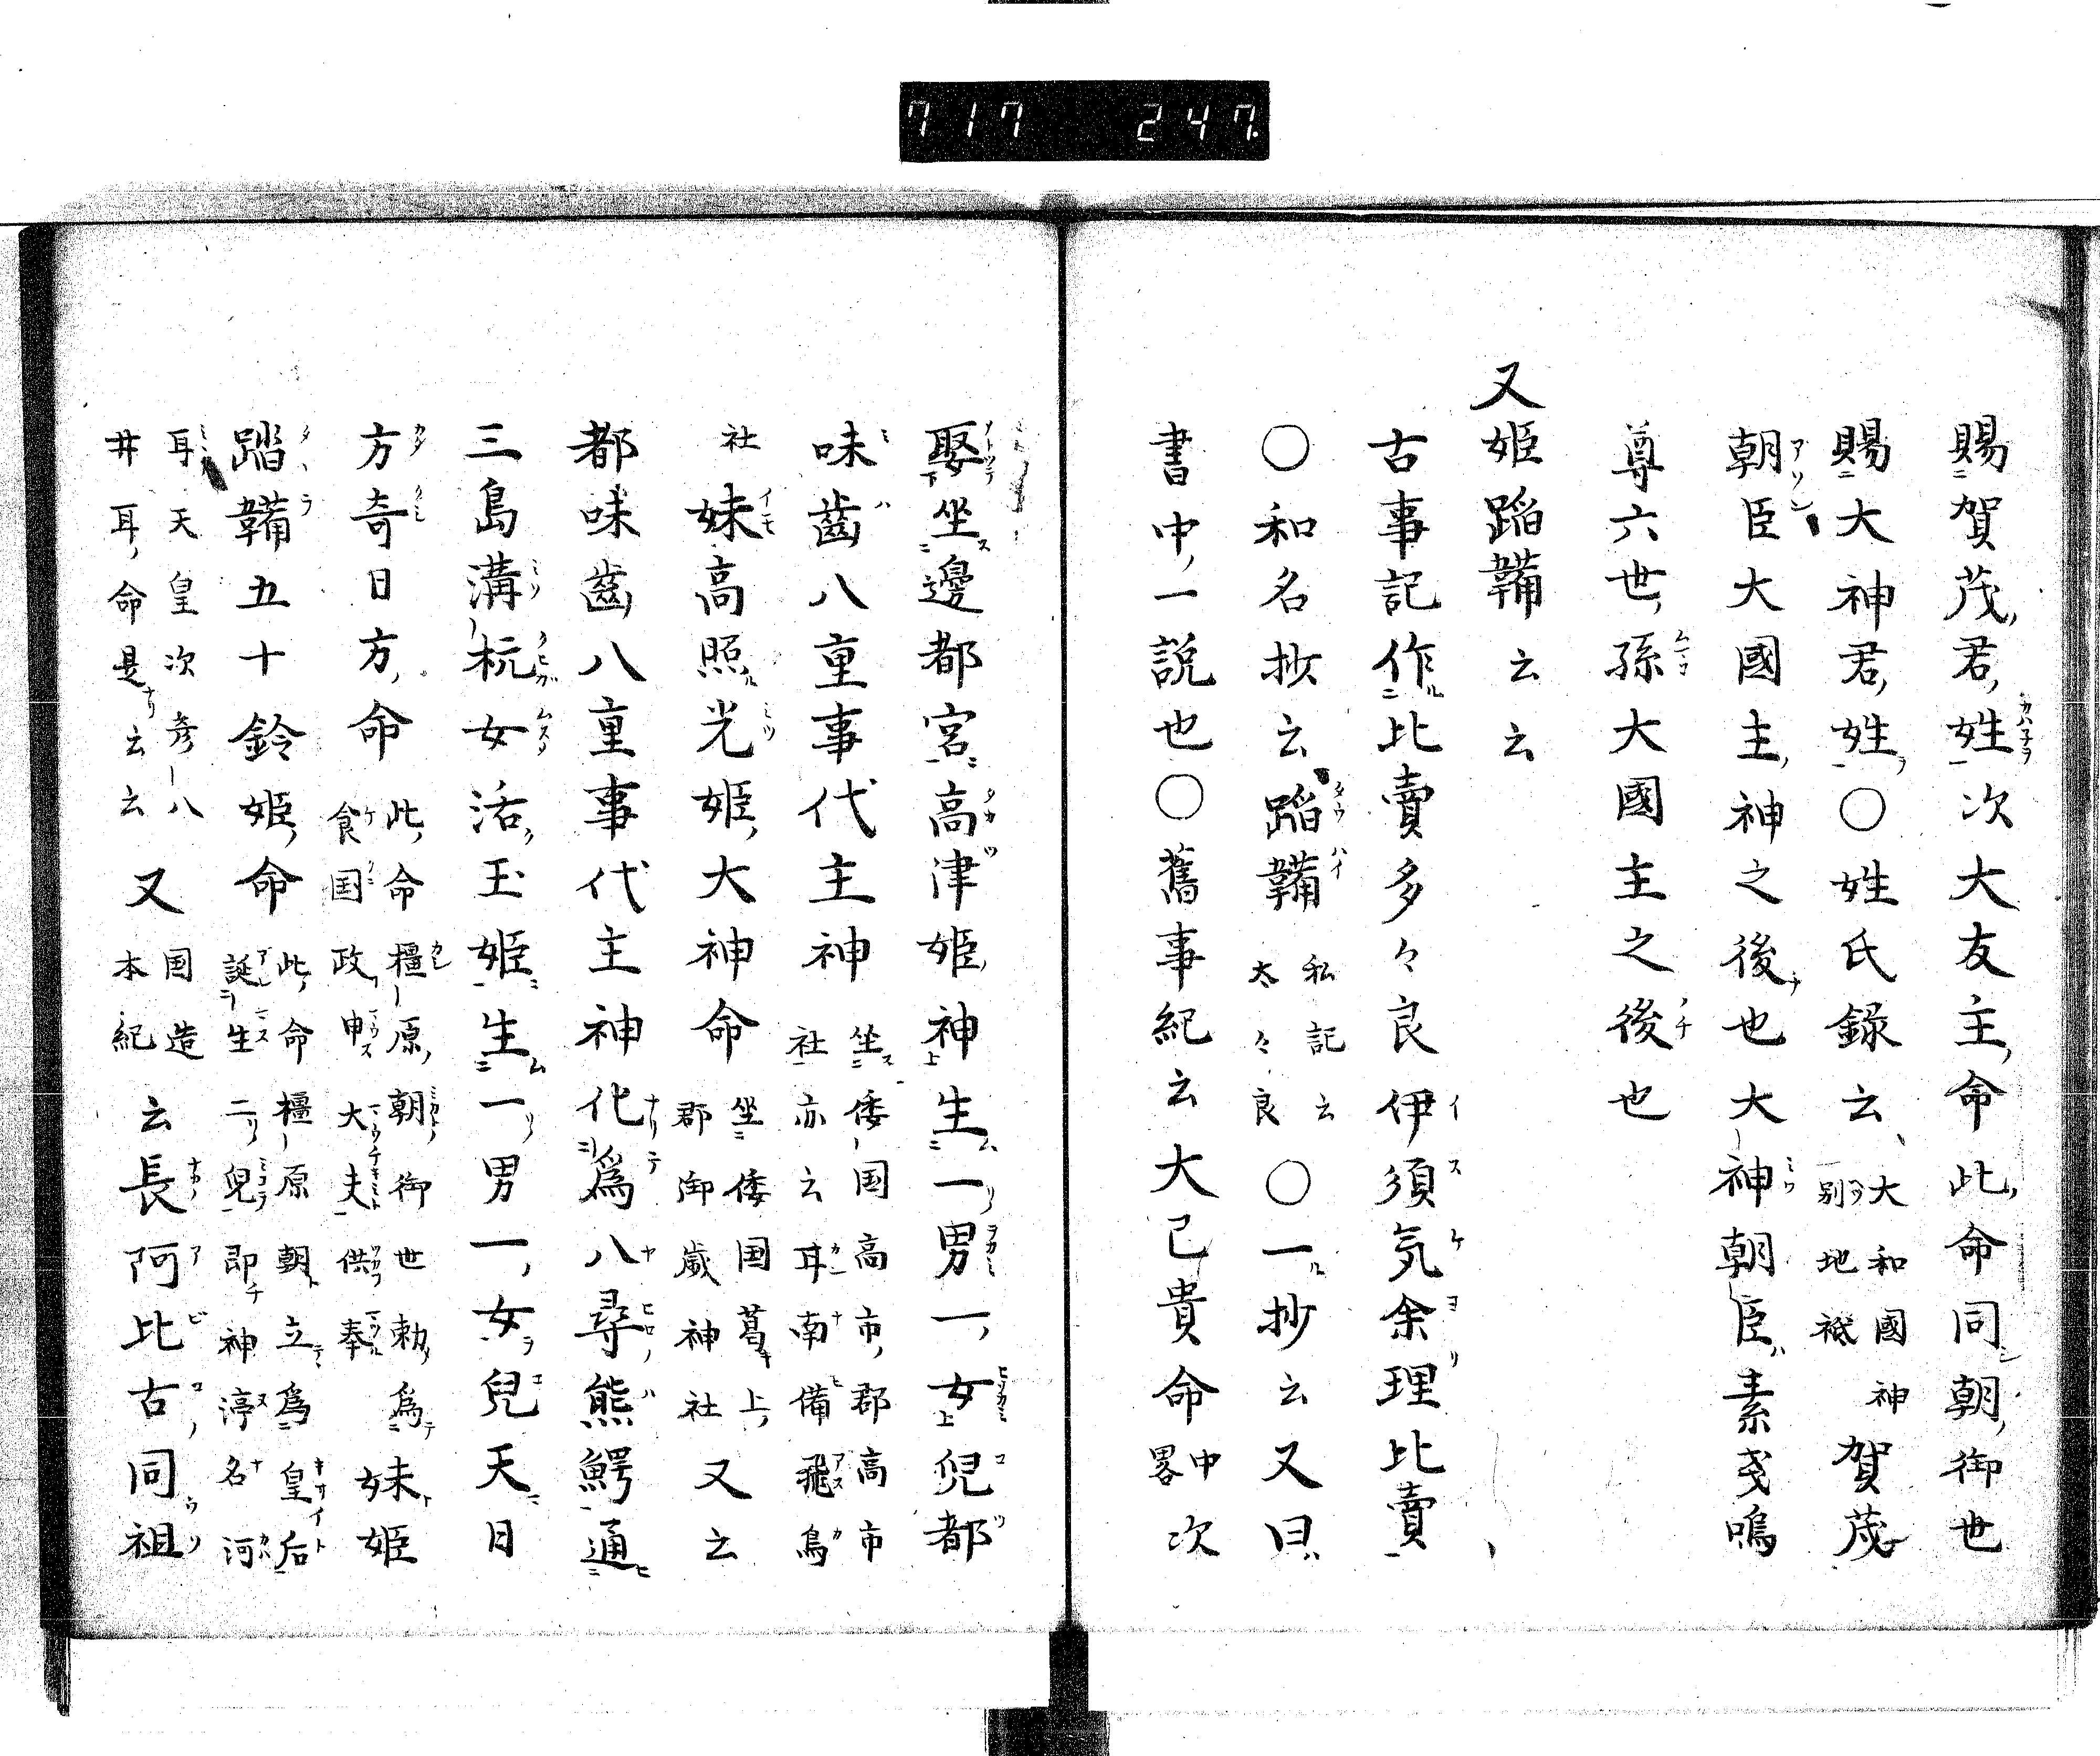 717 247
賜賀茂君姓次大友主命此命同朝御世
賜大神君姓〇姓氏録云大和國神
別地祇賀茂
朝臣大國主神之後也大神朝臣素戔嗚
尊六世孫大國主之後也
又姫蹈鞴云云
古事記作比賣多々良伊須気余理比賣
〇和名抄云蹈鞴私記云
太々良〇一抄云又曰
書中一説也〇舊事紀云大己貴命中
畧次
娶坐邊都宮高津姫神生一男一女兒都
味齒八重事代主神坐倭国高市郡高市
社亦云甘南備飛鳥
社妹高照光姫大神命坐倭国葛上
郡御歳神社又云
都味齒八重事代主神化爲八尋熊鰐通
三島溝杭女活玉姫生一男一女兒天日
方奇日方命此命橿原朝御世勅爲
食国政申大夫供奉妹姫
踏鞴五十鈴姫命此命橿原朝立爲皇后
誕生二兒即神渟名河
耳天皇次彦八
井耳命是云云又国造
本紀云長阿比古同祖